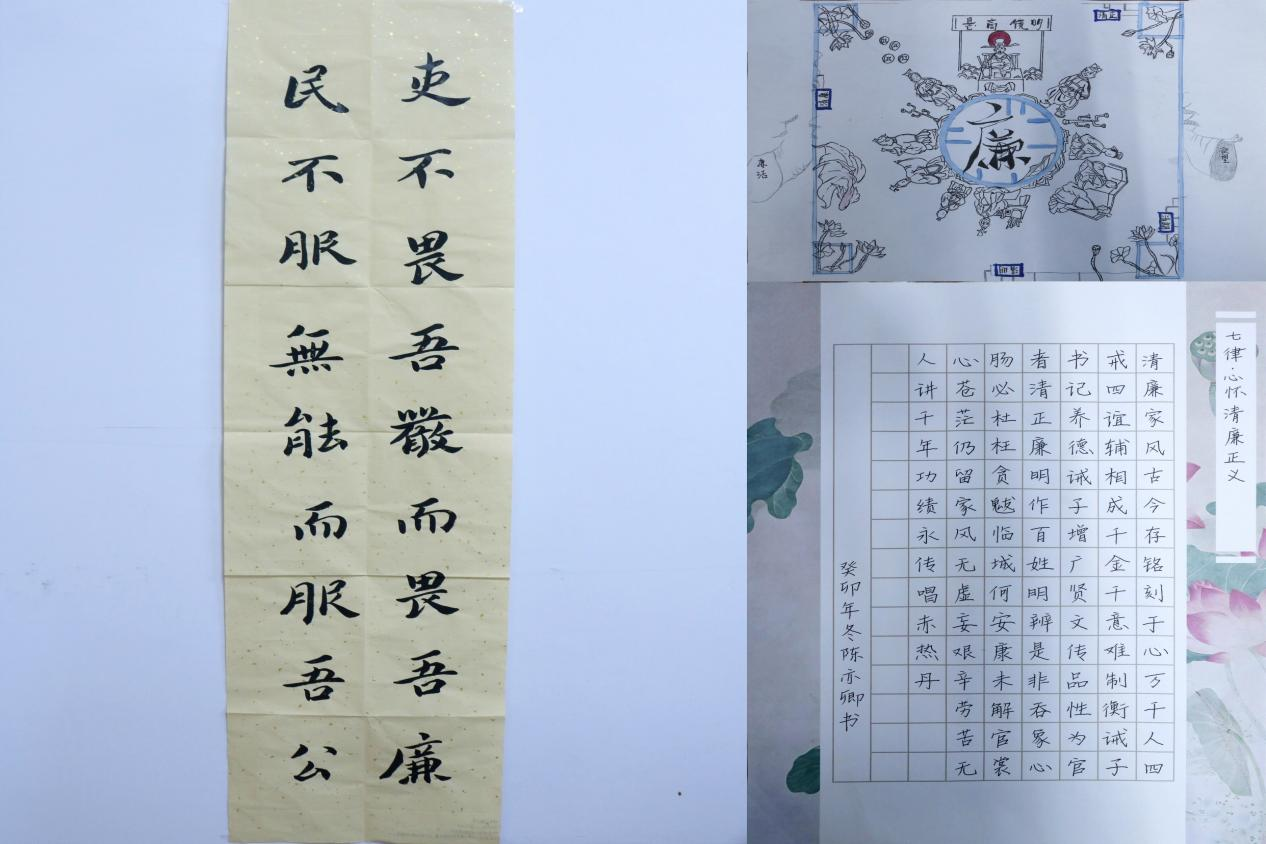 吏不畏吾嚴而畏吾廉
民不服無能而服吾公
明镜高悬
廉
廉洁
七律·心怀清廉正义
清廉家风古今存铭刻于心万千人四
戒四谊辅相成千金千意难制衡诫子
书记养德诫子增广贤文传品性为官
者清正廉明作百姓明辨是非吞象心
肠必杜枉贪魃临城何安康未解官裳
心苍茫仍留家风无虚妄艰辛劳苦无
人讲千年功绩永传唱赤热丹
癸卯年冬陈亦卿书